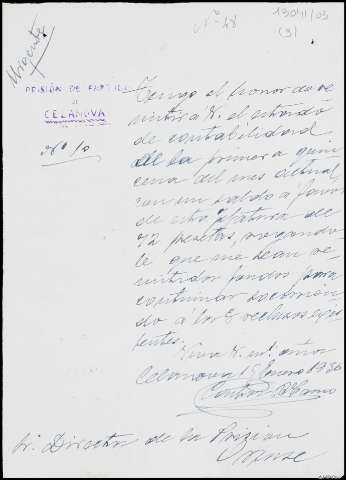 Nº 48
130/11/03
(3)
Urgente
PRISIÓN DE PARTIDO
DE
CELANOVA
Nº 10
Tengo el honor de re
mitir a V. el estado
de contabilidad
de la primera quin
cena del mes actual
con un saldo a favor
de esta Jefatura de
72 pesetas, rogando
le que me sean re
mitidos fondos para
continuar socorrien
do a los reclusos exis
tentes.
Viva V. m. años
Celanova 15 Enero 1936
Sr. Director de la Prisión
Orense